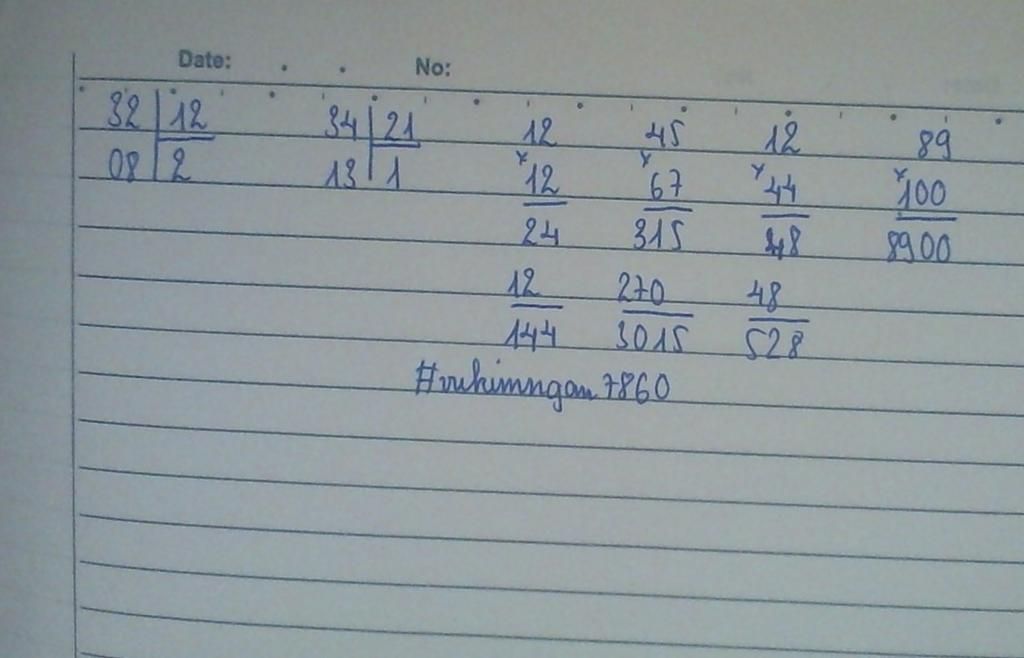 Date: . . No:
32 12 34 21 12 45 12 89
08 2 13 1 x 12 x 67 x 44 x 100
24 315 48 8900
12 270 48
144 3015 528
#vukimngan7860